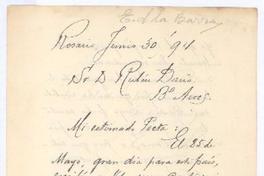 E. de la Barra
Rosario, Junio 30 '94
Sr. D. Rubén Darío
Bs. Aires.
Mi estimado Poeta:
El 25 de
Mayo, gran día para este país,